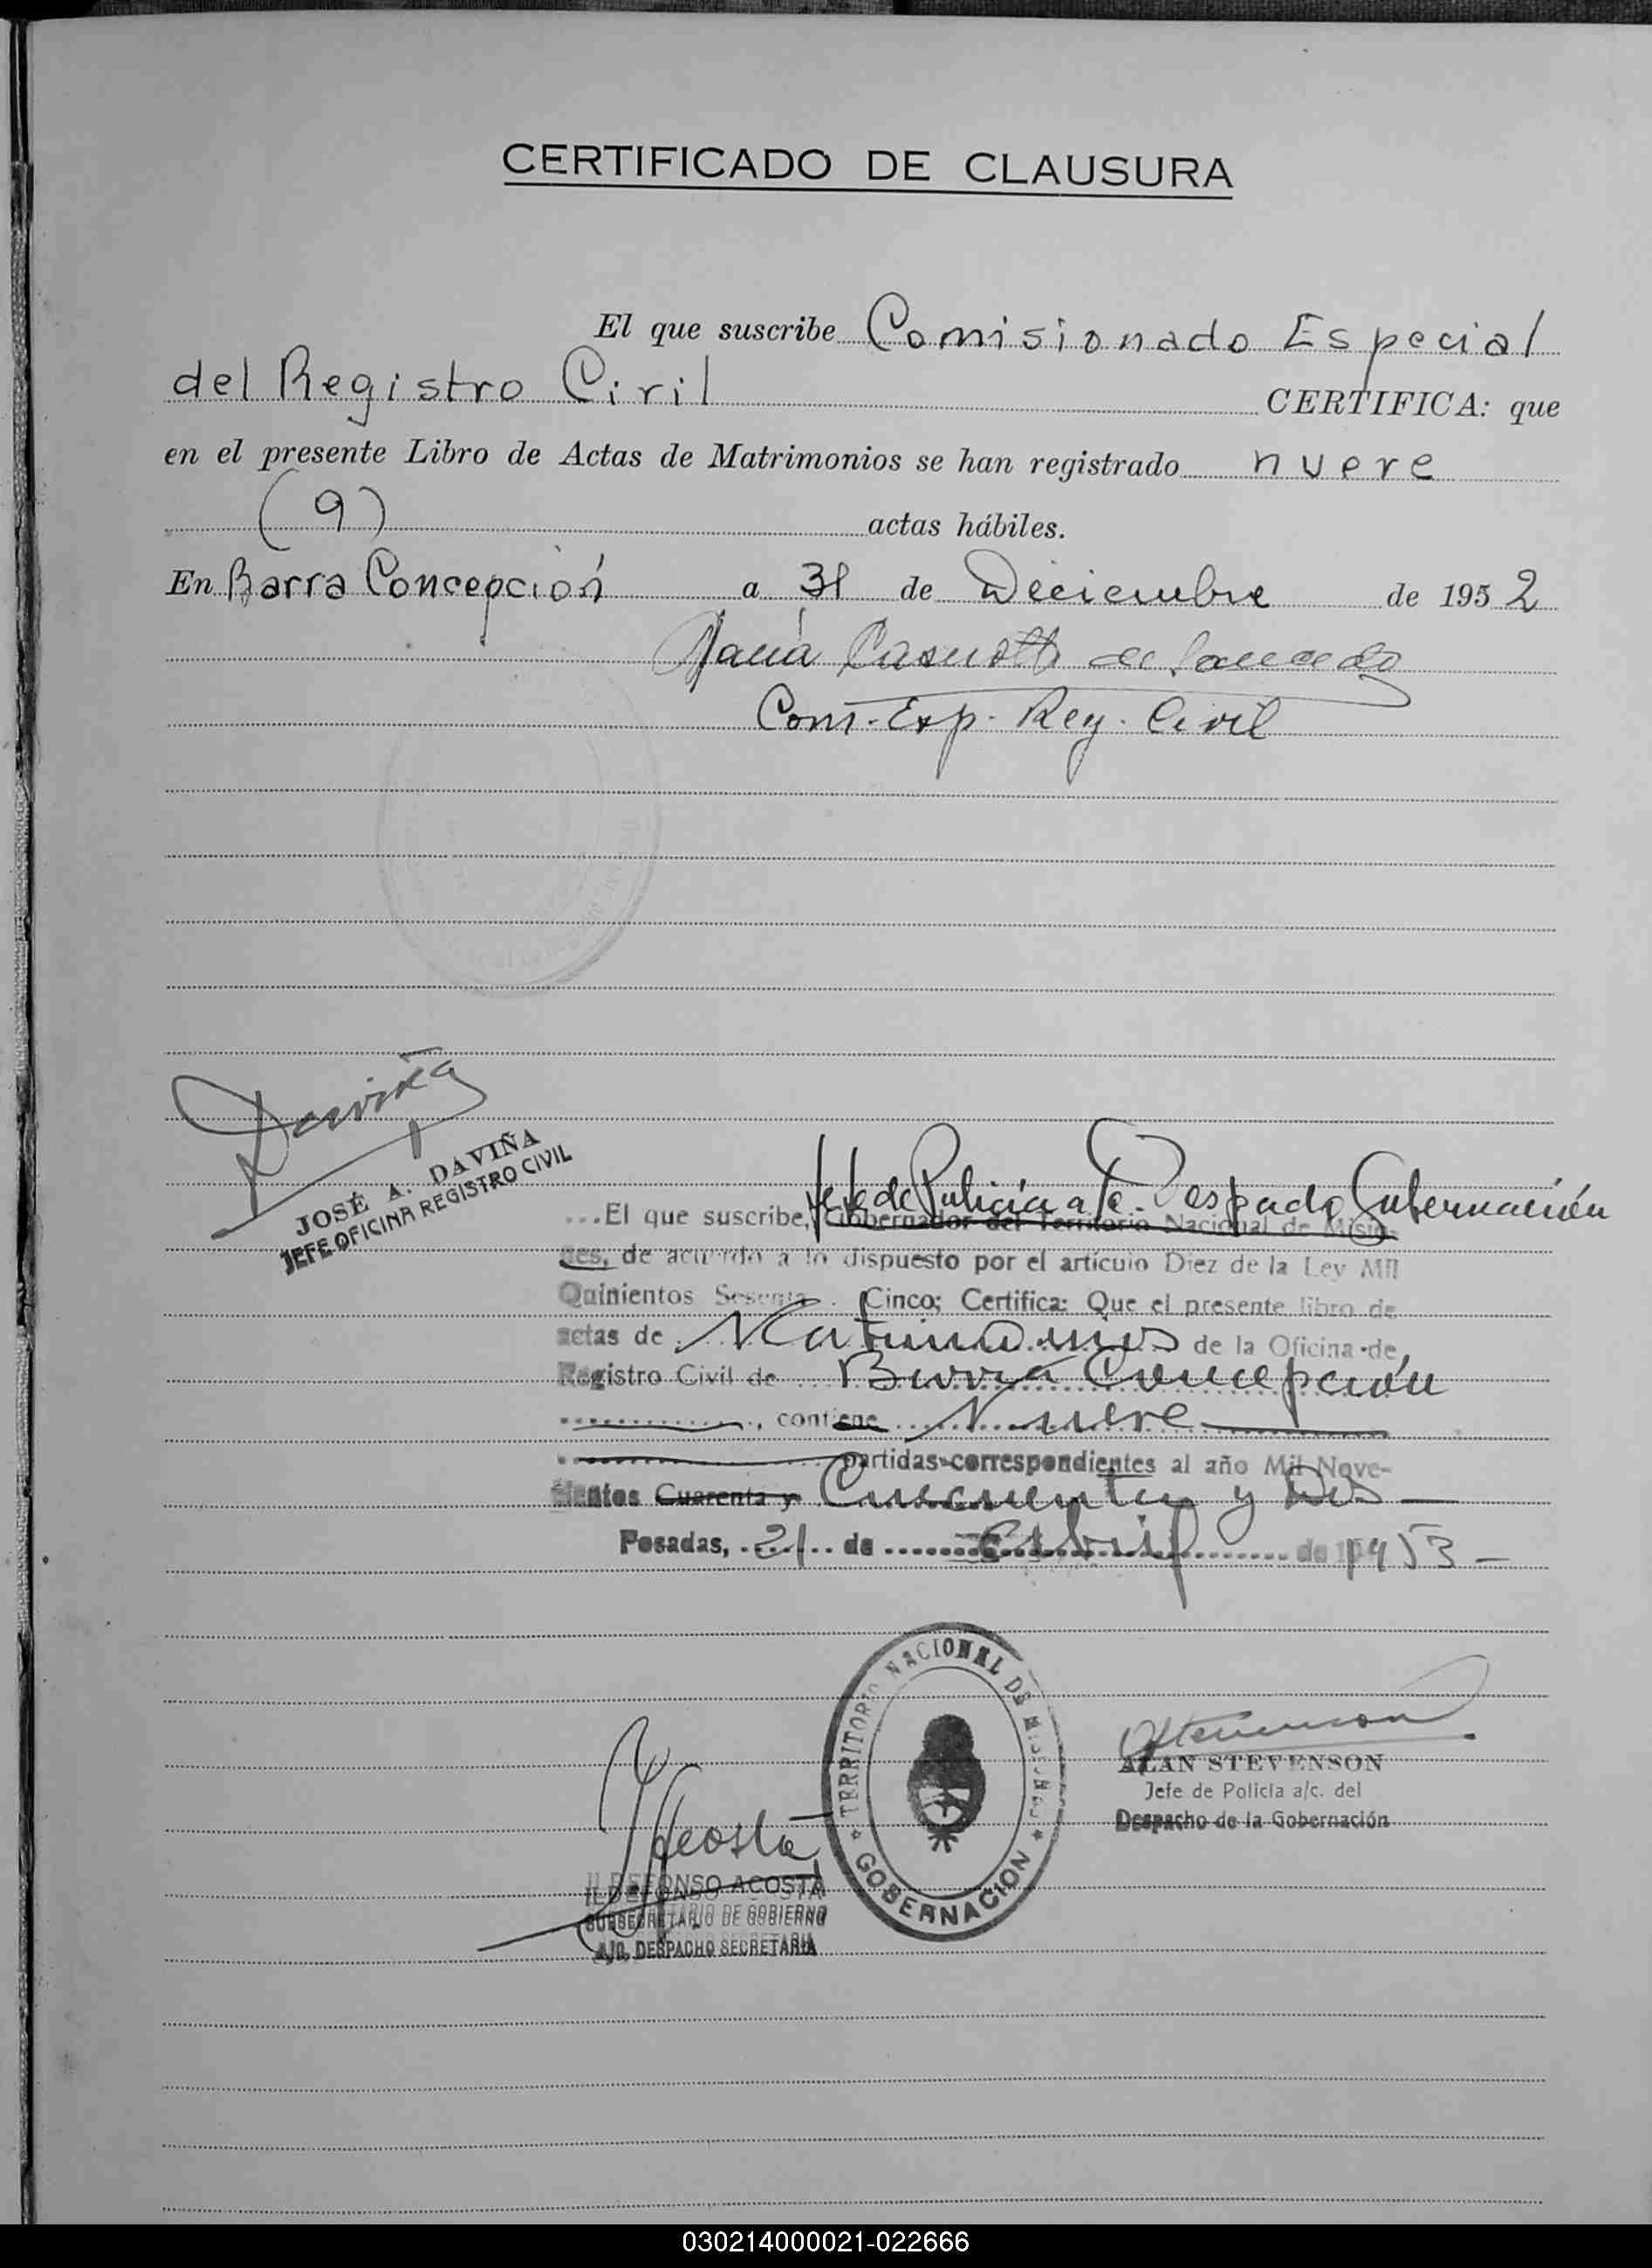 CERTIFICADO DE CLAUSURA
El que suscribe Comisionado Especial
del Registro Civil CERTIFICA: que
en el presente Libro de Actas de Matrimonios se han registrado nueve
(9) actas hábiles.
En Barra Concepción a 31 de Diciembre de 1952
María de
Com. Esp. Reg. Civil
Daviña
JOSÉ A. DAVIÑA
JEFE OFICINA REGISTRO CIVIL
Jefe de Policía a/c. Despacho Gobernación
...El que suscribe, Gobernador del Territorio Nacional de Misio-
nes, de acuerdo a lo dispuesto por el artículo Diez de la Ley Mil
Quinientos Sesenta Cinco; Certifica: Que el presente libro de
actas de Matrimonios de la Oficina de
Registro Civil de Barra Concepción
, contiene Nueve
partidas correspondientes al año Mil Nove-
cientos Cuarenta y Cincuenta y Dos
Posadas, 21 de Abril de 1953
TERRITORIO NACIONAL DE MISIONES
GOBERNACION
Stevenson
ALAN STEVENSON
Jefe de Policía a/c. del
Despacho de la Gobernación
Acosta
ILDEFONSO ACOSTA
SUBSECRETARIO DE GOBIERNO
A/C. DESPACHO SECRETARIA
030214000021-022666